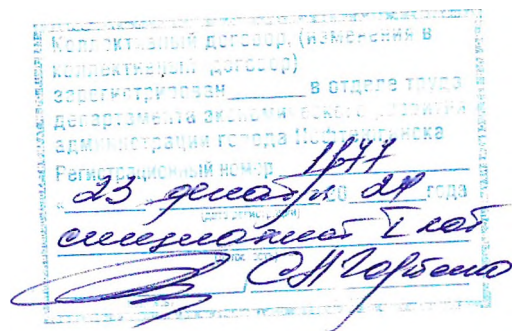 Коллективный договор, (изменения в
коллективный договор)
зарегистрирован в отделе труда
департамента экономического развития
администрации города Нефтеюганска
Регистрационный номер 1677
« 23 декабря 20 24 года
специалист I кат